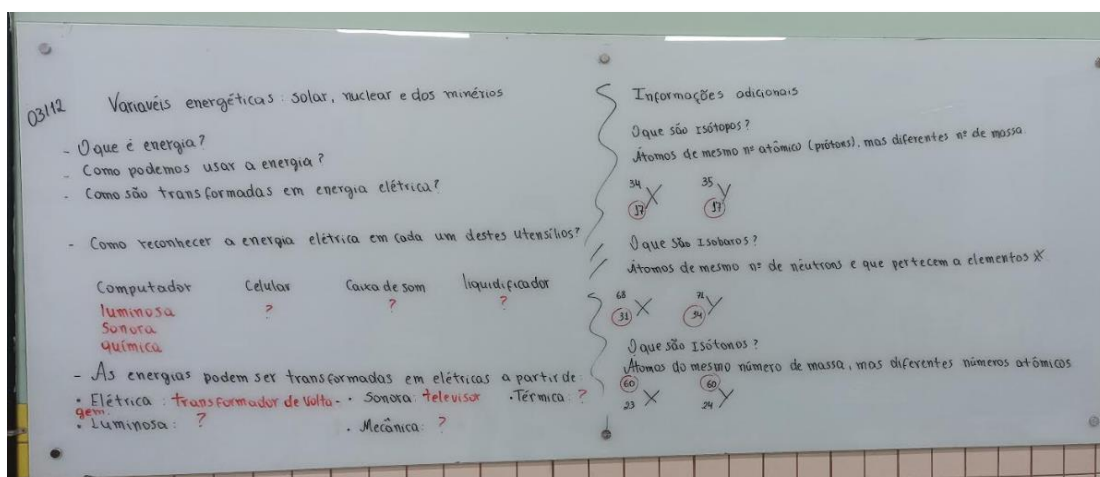 03/12 Variavéis energéticas: solar, nuclear e dos minérios
- O que é energia?
- Como podemos usar a energia?
- Como são transformadas em energia elétrica?
- Como reconhecer a energia elétrica em cada um destes utensílios?
Computador Celular Caixa de som liquidificador
luminosa ? ? ?
Sonora
química
- As energias podem ser transformadas em elétricas a partir de:
• Elétrica: transformador de Volta- • Sonora: televisor •Térmica: ?
gem.
• Luminosa: ? • Mecânica: ?
Informações adicionais
O que são Isótopos?
Átomos de mesmo nº atômico (prótons), mas diferentes nº de massa
34 X 35 Y
17 17
O que são Isobaros?
Átomos de mesmo nº de nêutrons e que pertecem a elementos X
68 X 71 Y
31 34
O que são Isótonos?
Átomos do mesmo número de massa, mas diferentes números atômicos
60 X 60 Y
23 24